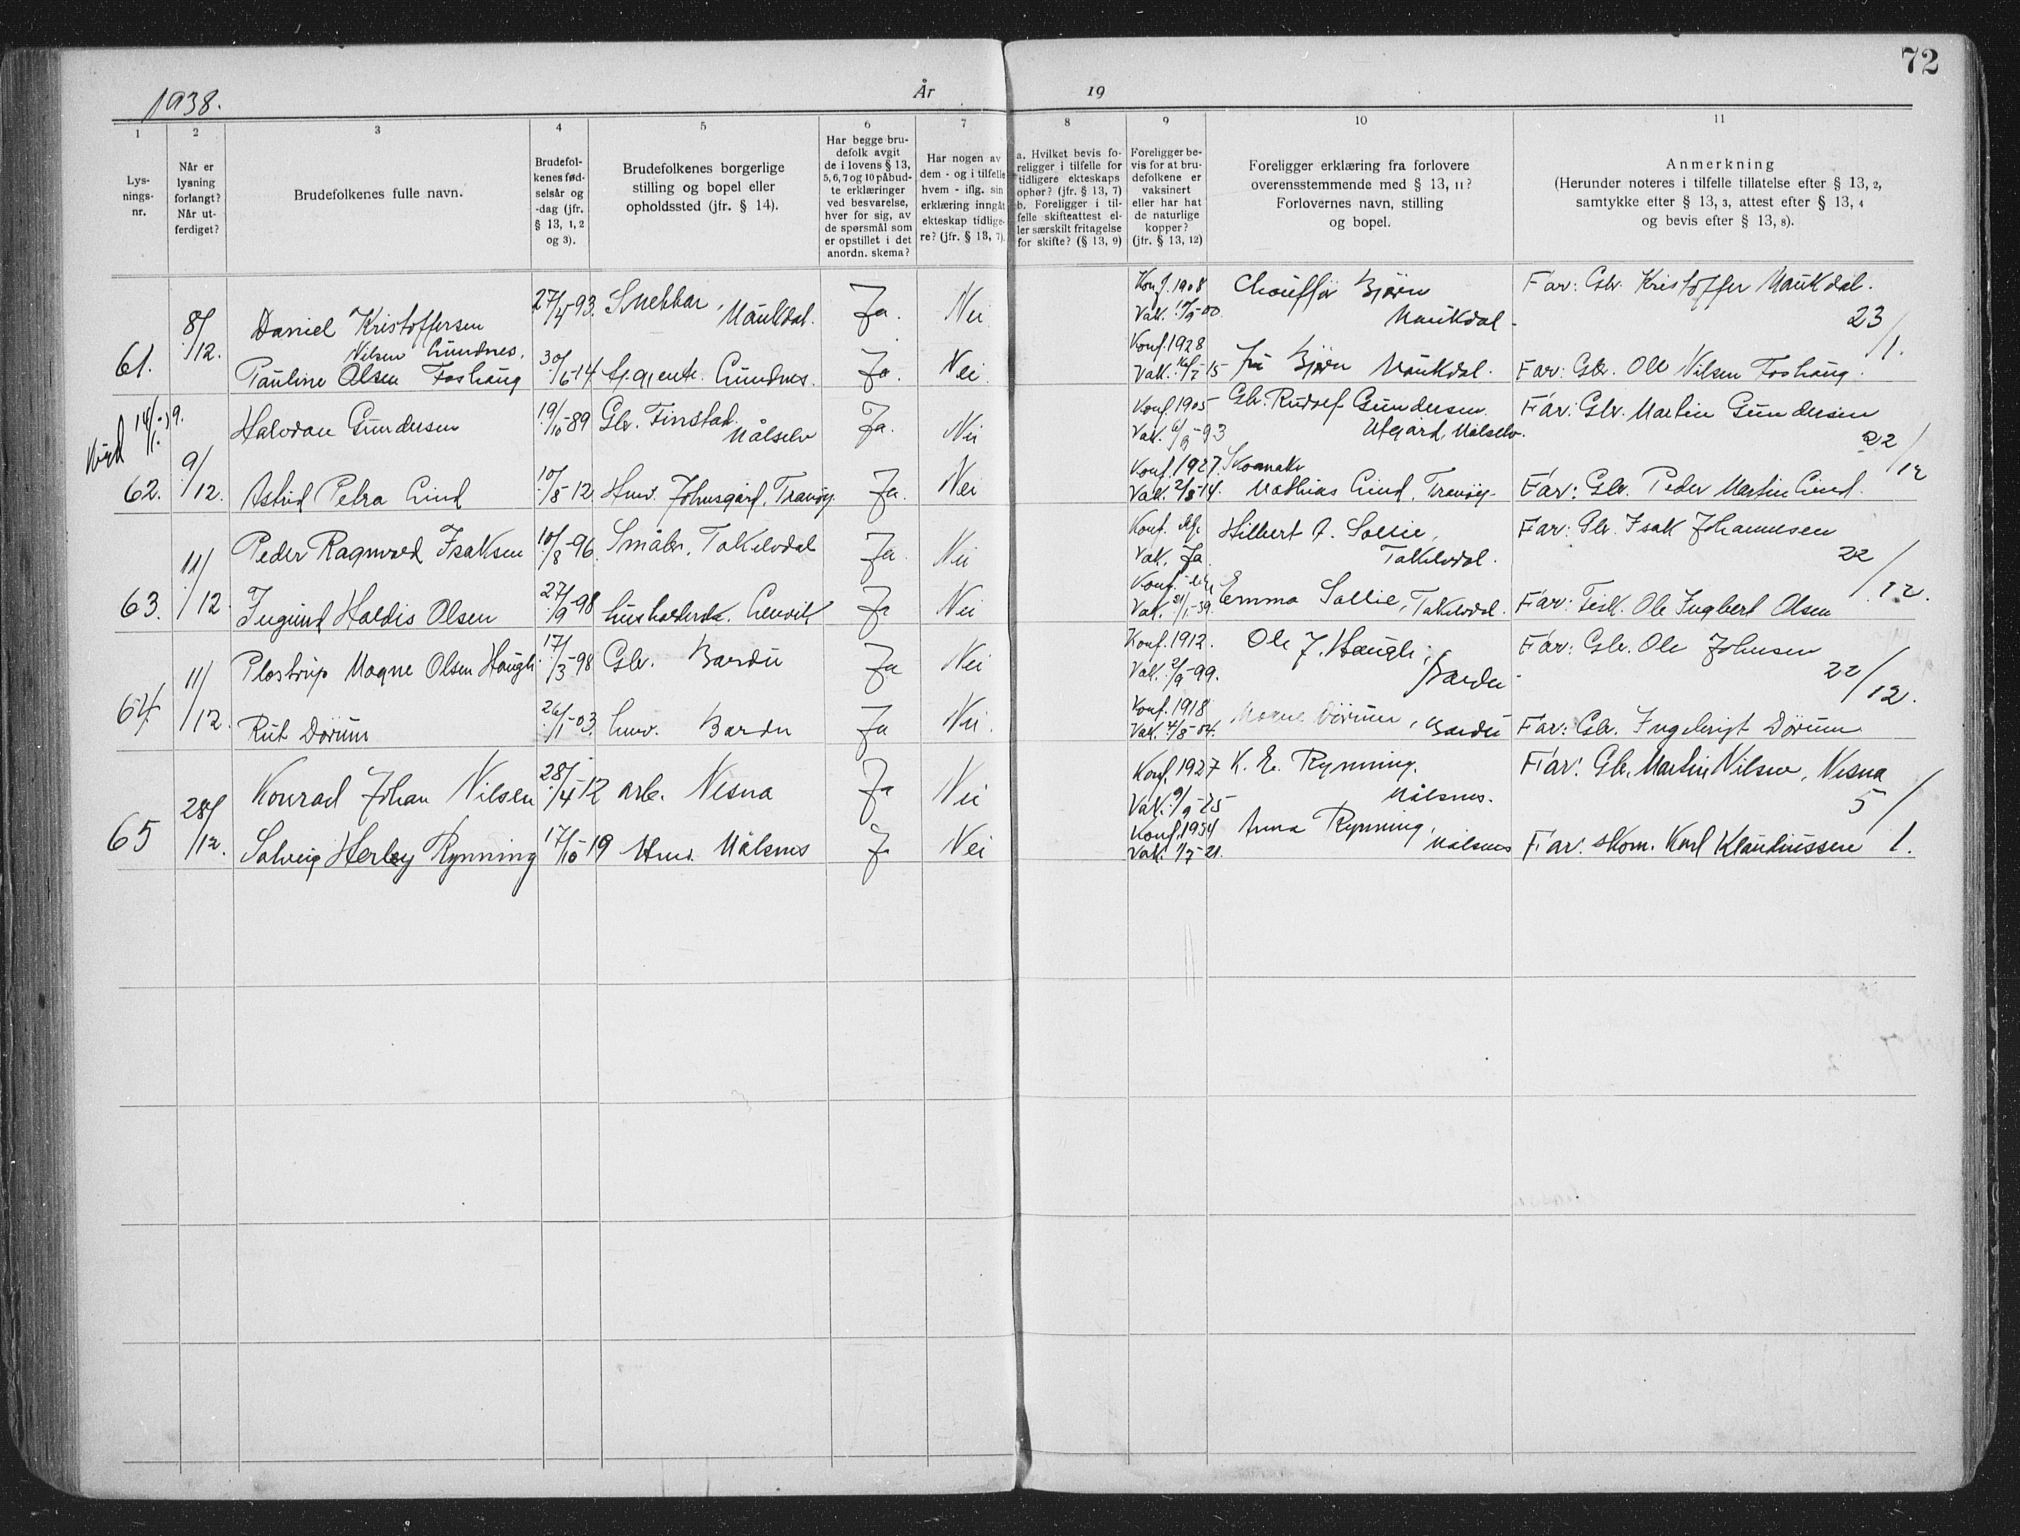 72
1938.
År 19
1
2
3
4
5
6
7
8
9
10
11
Lys-
nings-
nr.
Når er
lysning
forlangt?
Når ut-
ferdiget?
Brudefolkenes fulle navn.
Brudefol-
kenes fød-
selsår og
-dag (jfr.
§ 13, 1, 2
og 3).
Brudefolkenes borgerlige
stilling og bopel eller
opholdssted (jfr. § 14).
Har begge bru-
defolk avgit
de i lovens § 13,
5, 6, 7 og 10 påbud-
te erklæringer
ved besvarelse,
hver for sig, av
de spørsmål som
er opstillet i det
anordn. skema?
Har nogen av
dem - og i tilfelle
hvem - iflg. sin
erklæring inngått
ekteskap tidlige-
re? (jfr. § 13, 7).
a. Hvilket bevis fo-
religger i tilfelle for
tidligere ekteskaps
ophør? (jfr. § 13, 7)
b. Foreligger i til-
felle skifteattest el-
ler særskilt fritagelse
for skifte? (§ 13, 9)
Foreligger be-
vis for at bru-
defolkene er
vaksinert
eller har hat
de naturlige
kopper?
(jfr. § 13, 12)
Foreligger erklæring fra forlovere
overensstemmende med § 13, 11?
Forlovernes navn, stilling
og bopel.
Anmerkning
(Herunder noteres i tilfelle tillatelse efter § 13, 2,
samtykke efter § 13, 3, attest efter § 13, 4
og bevis efter § 13, 8).
61. 8/12. Daniel Kristoffersen 27/4-93. Snekkar, Maukdal. Ja. Nei Konf. 1908 Chauffør Bjørn Maukdal. Far: Gbr. Kristoffer Maukdal. 23/1.
Nilsen Gundnes.
Pauline Olsen Foshaug 30/6-14 Ja. Nei. Konf. 1928 Vak. 15 fru Bjørn Maukdal. Far: Gbr. Ole Nilsen Foshaug.
62. 9/12. Halvdan Gundersen 19/10-89 Gbr. Finstad. Målselv Ja. Nei Konf. 1905 Vak. 6/9-93 Gbr. Rudolf Gundersen. Utgård, Målselv. Far: Gbr. Martin Gundersen 22/12
Astrid Petra Lind 10/8-12 Husv. Johnsgård, Tranøy Ja. Nei Konf. 1927. Vak. 2/8-14. Skomak. Mathias Lind, Tranøy. Far: Gbr. Peder Martin Lind.
63. 11/12. Peder Ragnvald Isaksen 10/8-96. Småbr. Takelvdal Ja. Nei Konf. Vak. Ja Hilbert J. Sollie, Takelvdal. Far: Gbr. Isak Johannesen 22/12.
Ingund Haldis Olsen 27/9-98 husholderske. Lenvik Ja Nei Konf. Vak. Emma Sollie, Takelvdal. Far: Fisk. Ole Ingbert Olsen
64. 11/12. Plostrup Magne Olsen Haugli 17/3-98 Gbr. Bardu Ja Nei Konf. 1912. Vak. 2/9-99. Ole J. Haugli, Bardu. Far: Gbr. Ole Johnsen 22/12.
Rut Dørum 26/1-03. husv. Bardu Ja Nei. Konf. 1918 Vak. 4/8-04. Magne Dørum, Bardu Far: Gbr. Ingebrigt Dørum
65 28/12. Konrad Johan Nilsen 28/4-12 arb. Nesna Ja Nei Konf. 1927 Vak. 9/9-25 K. E. Rynning. Målsnes. Far: Gbr. Martin Nilsen, Nesna 5/1.
Solveig Herley Rynning 17/10-19 Husv. Målsnes Ja Nei Konf. 1934 Vak. 1/7-21. Anna Rynning, Målsnes Far: skom. Karl Klaudiussen